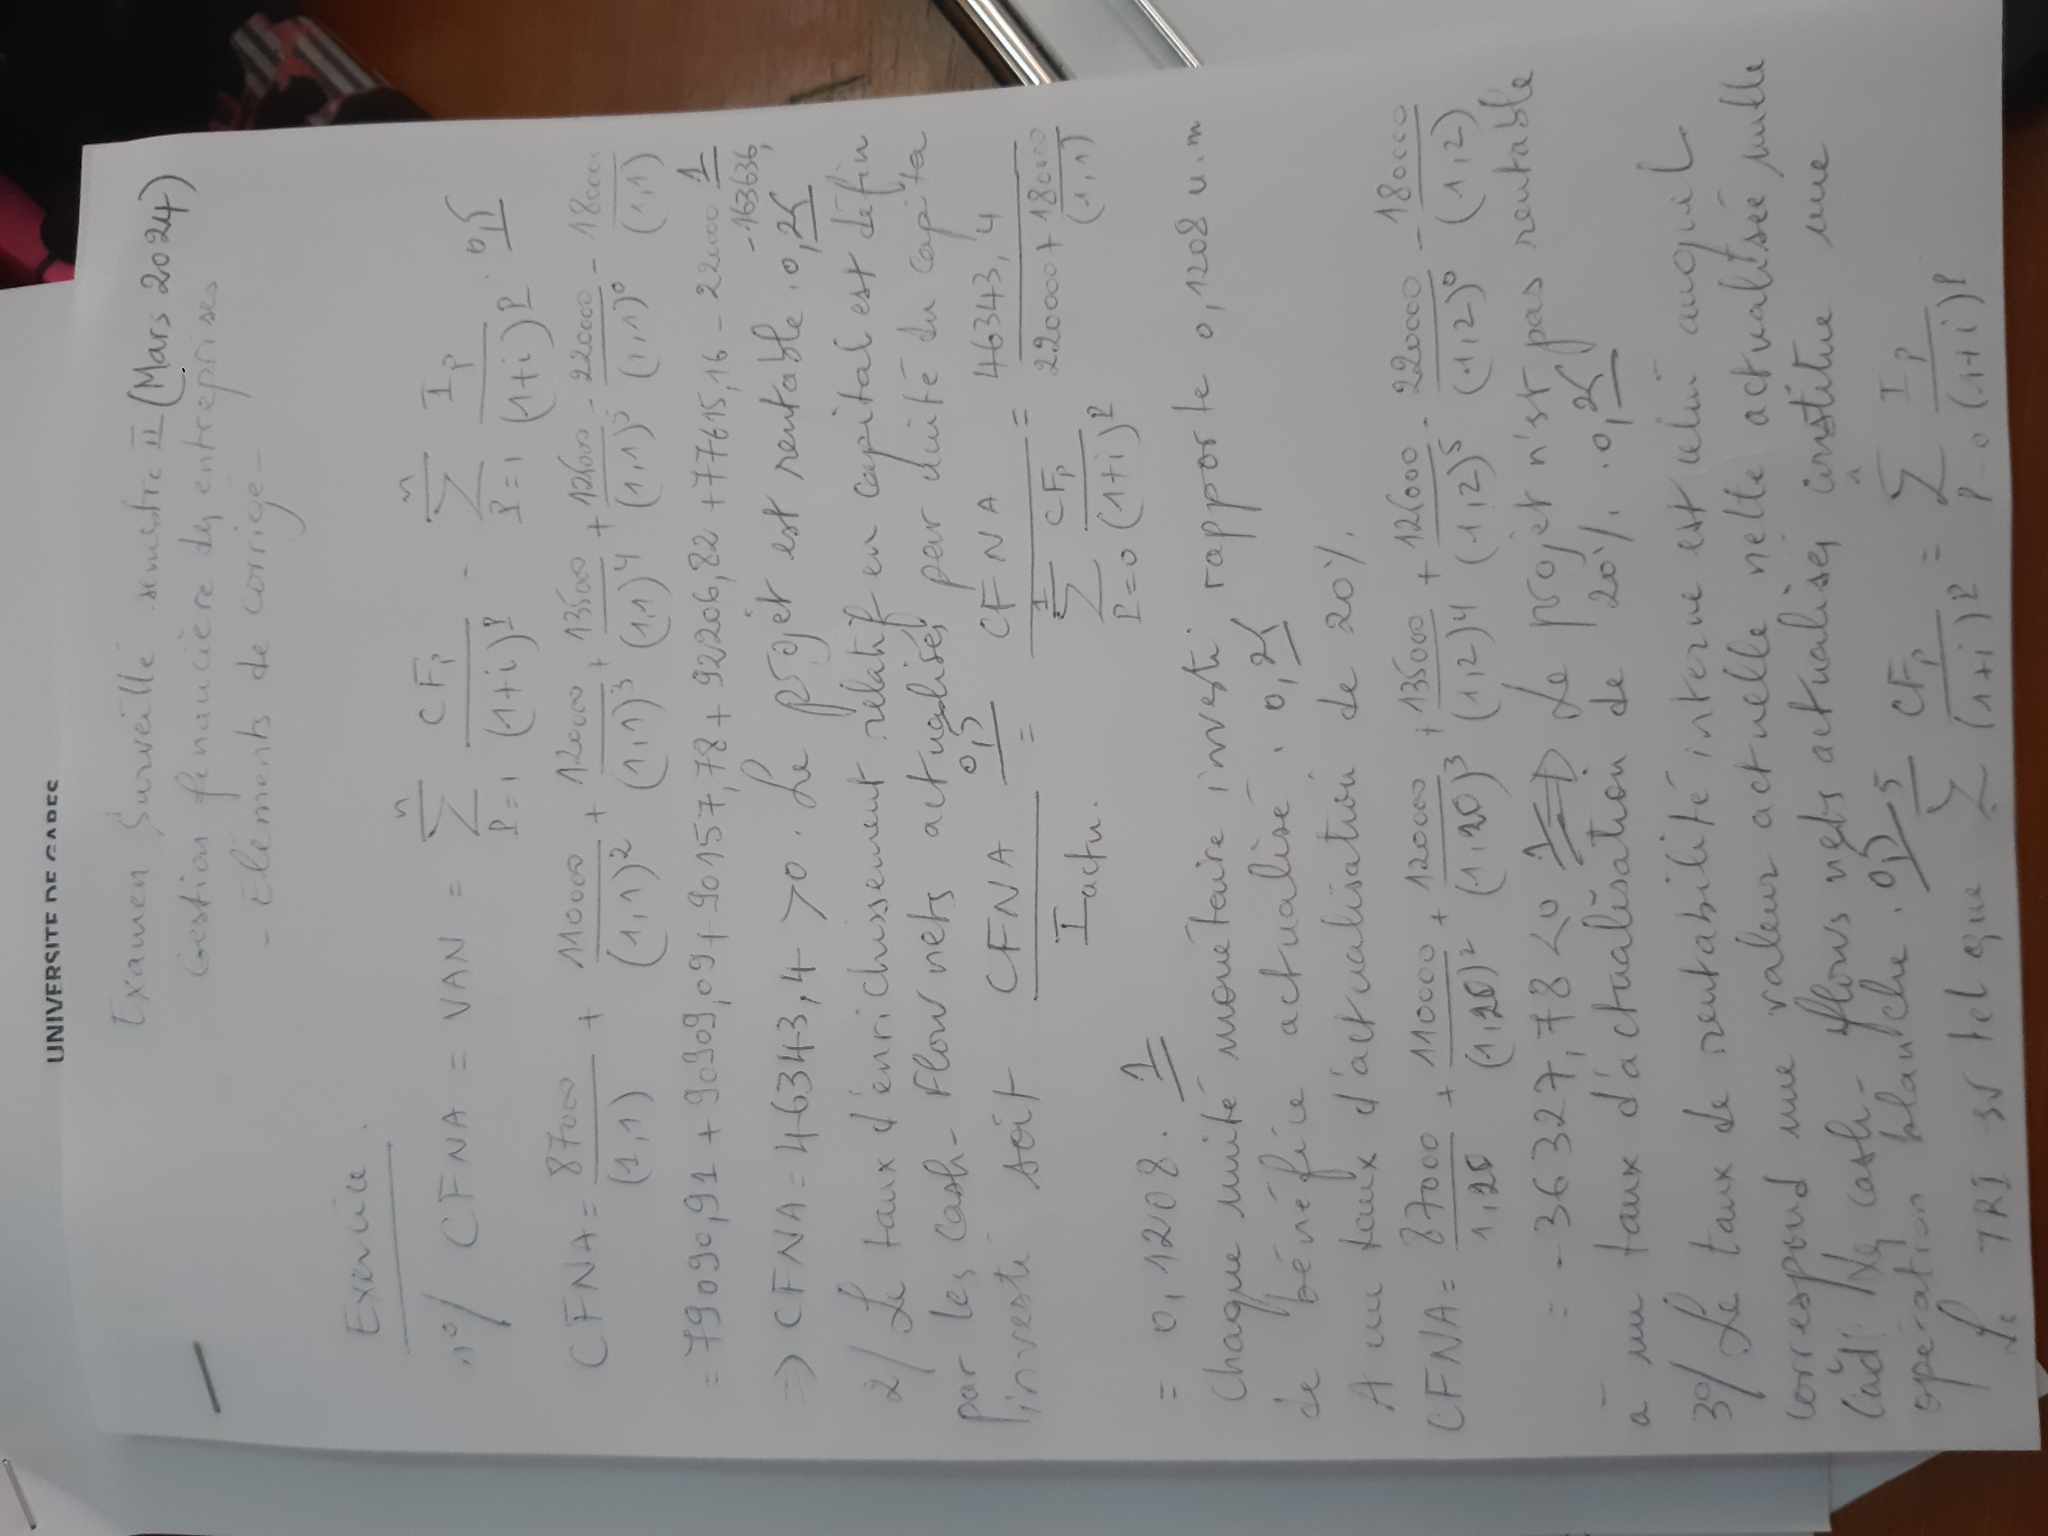 UNIVERSITE DE GABES
Examen Surveillé semestre II (Mars 2024)
Gestion financière des entreprises
- Eléments de corrigé -
Exercice.
1°/ CFNA = VAN = n Σ P=1 CFp/(1+i)^P - n Σ P=1 Ip/(1+i)^P . 0,5
CFNA = 87000/(1,1) + 110000/(1,1)^2 + 120000/(1,1)^3 + 135000/(1,1)^4 + 125000/(1,1)^5 - 220000/(1,1)^0 - 180000/(1,1)
= 79090,91 + 90909,09 + 90157,78 + 92206,82 + 77615,16 - 220000 1
- 163636,
⇒ CFNA = 46343,4 >0. Le projet est rentable. 0,25
2/ Le taux d'enrichissement relatif en capital est défin
par les cash-Flow nets actualisés par unité du capita
investi soit CFNA/I actu. 0,5 = CFNA / 1 Σ P=0 CFp/(1+i)^P = 46343,4 / 220000 + 180000/(1,1)
= 0,1208. 1
Chaque unité monétaire investi rapporte 0,1208 u.m
de bénéfice actualisé. 0,25
A un taux d'actualisation de 20%.
CFNA = 87000/1,20 + 110000/(1,20)^2 + 120000/(1,20)^3 + 135000/(1,2)^4 + 125000/(1,2)^5 - 220000/(1,2)^0 - 180000/(1,2)
= - 36327,78 <0 1 ⇒ Le projet n'st pas rentable
à un taux d'actualisation de 20%. 0,25
3°/ Le taux de rentabilité interne est celui auquel
correspond une valeur actuelle nette actualisée nulle
Càd: les cash-flows nets actualisés constitue une
opération blanche. 0,5
Le TRI st tel que 5 Σ CFp/(1+i)^P = n Σ P=0 Ip/(1+i)^P